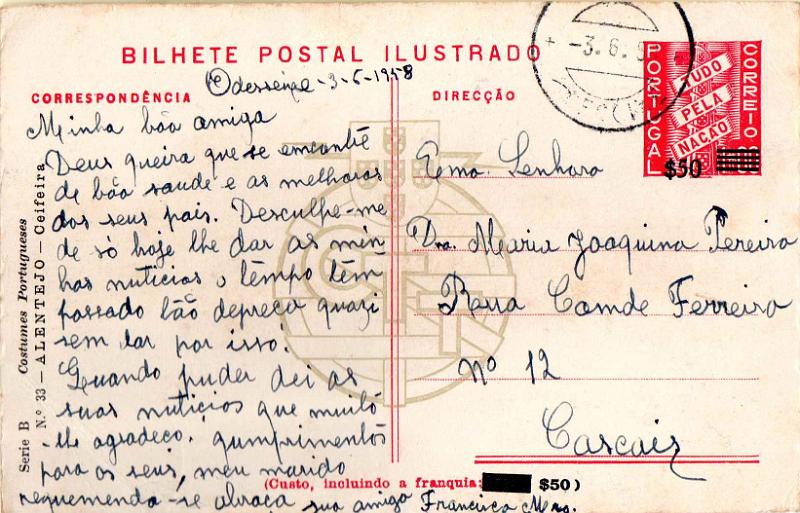 BILHETE POSTAL ILUSTRADO
3-6-1958
CORRESPONDÊNCIA
DIRECÇÃO
-3.6.5
PORTUGAL
CORREIO
TUDO
PELA
NAÇÃO
$50
Minha bôa amiga
Deus queira que se encontre
de bôa saude e as melhoras
dos seus pais. Desculpe-me
de só hoje lhe dar as min
has nuticios o têmpo têm
passado tão depreça quazi
sem dar por isso.
Quando puder dei as
suas nuticios que muito
lhe agradeco. Qumprimentos
para os seus, meu marido
requemenda-se abraca sua amiga Francisca
Exma. Senhora
Dra. Maria Joaquina Pereira
Rua Comde Ferreira
nº 12
Cascais
CTT
(Custo, incluindo a franquia: $50)
Serie B Costumes Portugueses
N.º 33 — ALENTEJO — Ceifeira